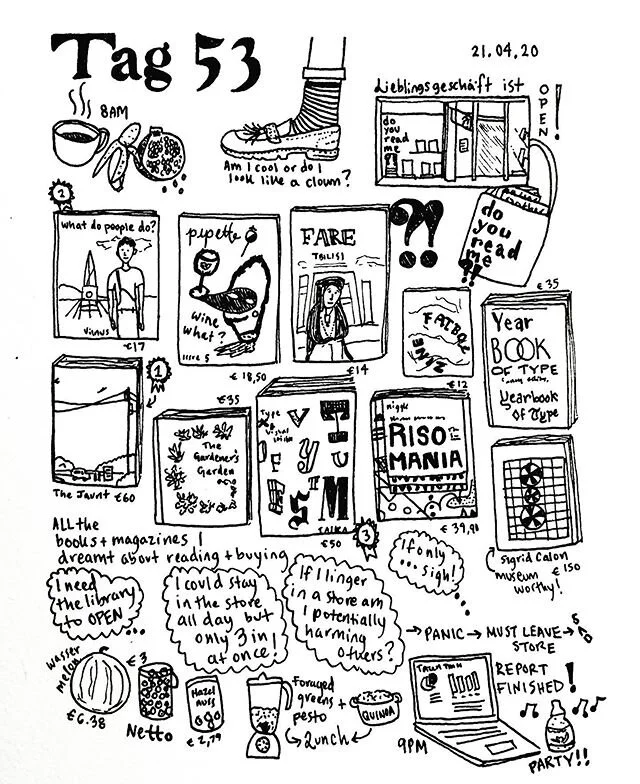 Tag 53
21.04.20
8AM
Am I cool or do I
look like a clown?
Lieblingsgeschäft ist
OPEN!
do
you
read
me
do
you
read
me
?!
2
what do people do?
VILNIUS
€17
pipette
wine
what?
issue 5
€ 18,50
FARE
TBILISI
€14
?!
FATBOY
ZINE
€12
€ 35
Year
BOOK
OF TYPE
Yearbook
of Type
1
The Jaunt €60
€35
The
Gardener's
Garden
Type
Visual
€50
3
RISO
MANIA
€ 39,90
Sigrid Calon
€ 150
museum
worthy!
ALL the
books + magazines I
dreamt about reading + buying
I need
the library
to OPEN
...
I could stay
in the store
all day but
only 3 in
at once!
If I linger
in a store am
I potentially
harming
others?
If only
... sigh!
→ PANIC → MUST LEAVE →
STORE
Wasser
melon
€6.38
€3
Netto
Hazel
nuss
€ 2,79
Foraged
greens +
pesto
QUINOA
Lunch
9PM
REPORT
FINISHED!
PARTY!!